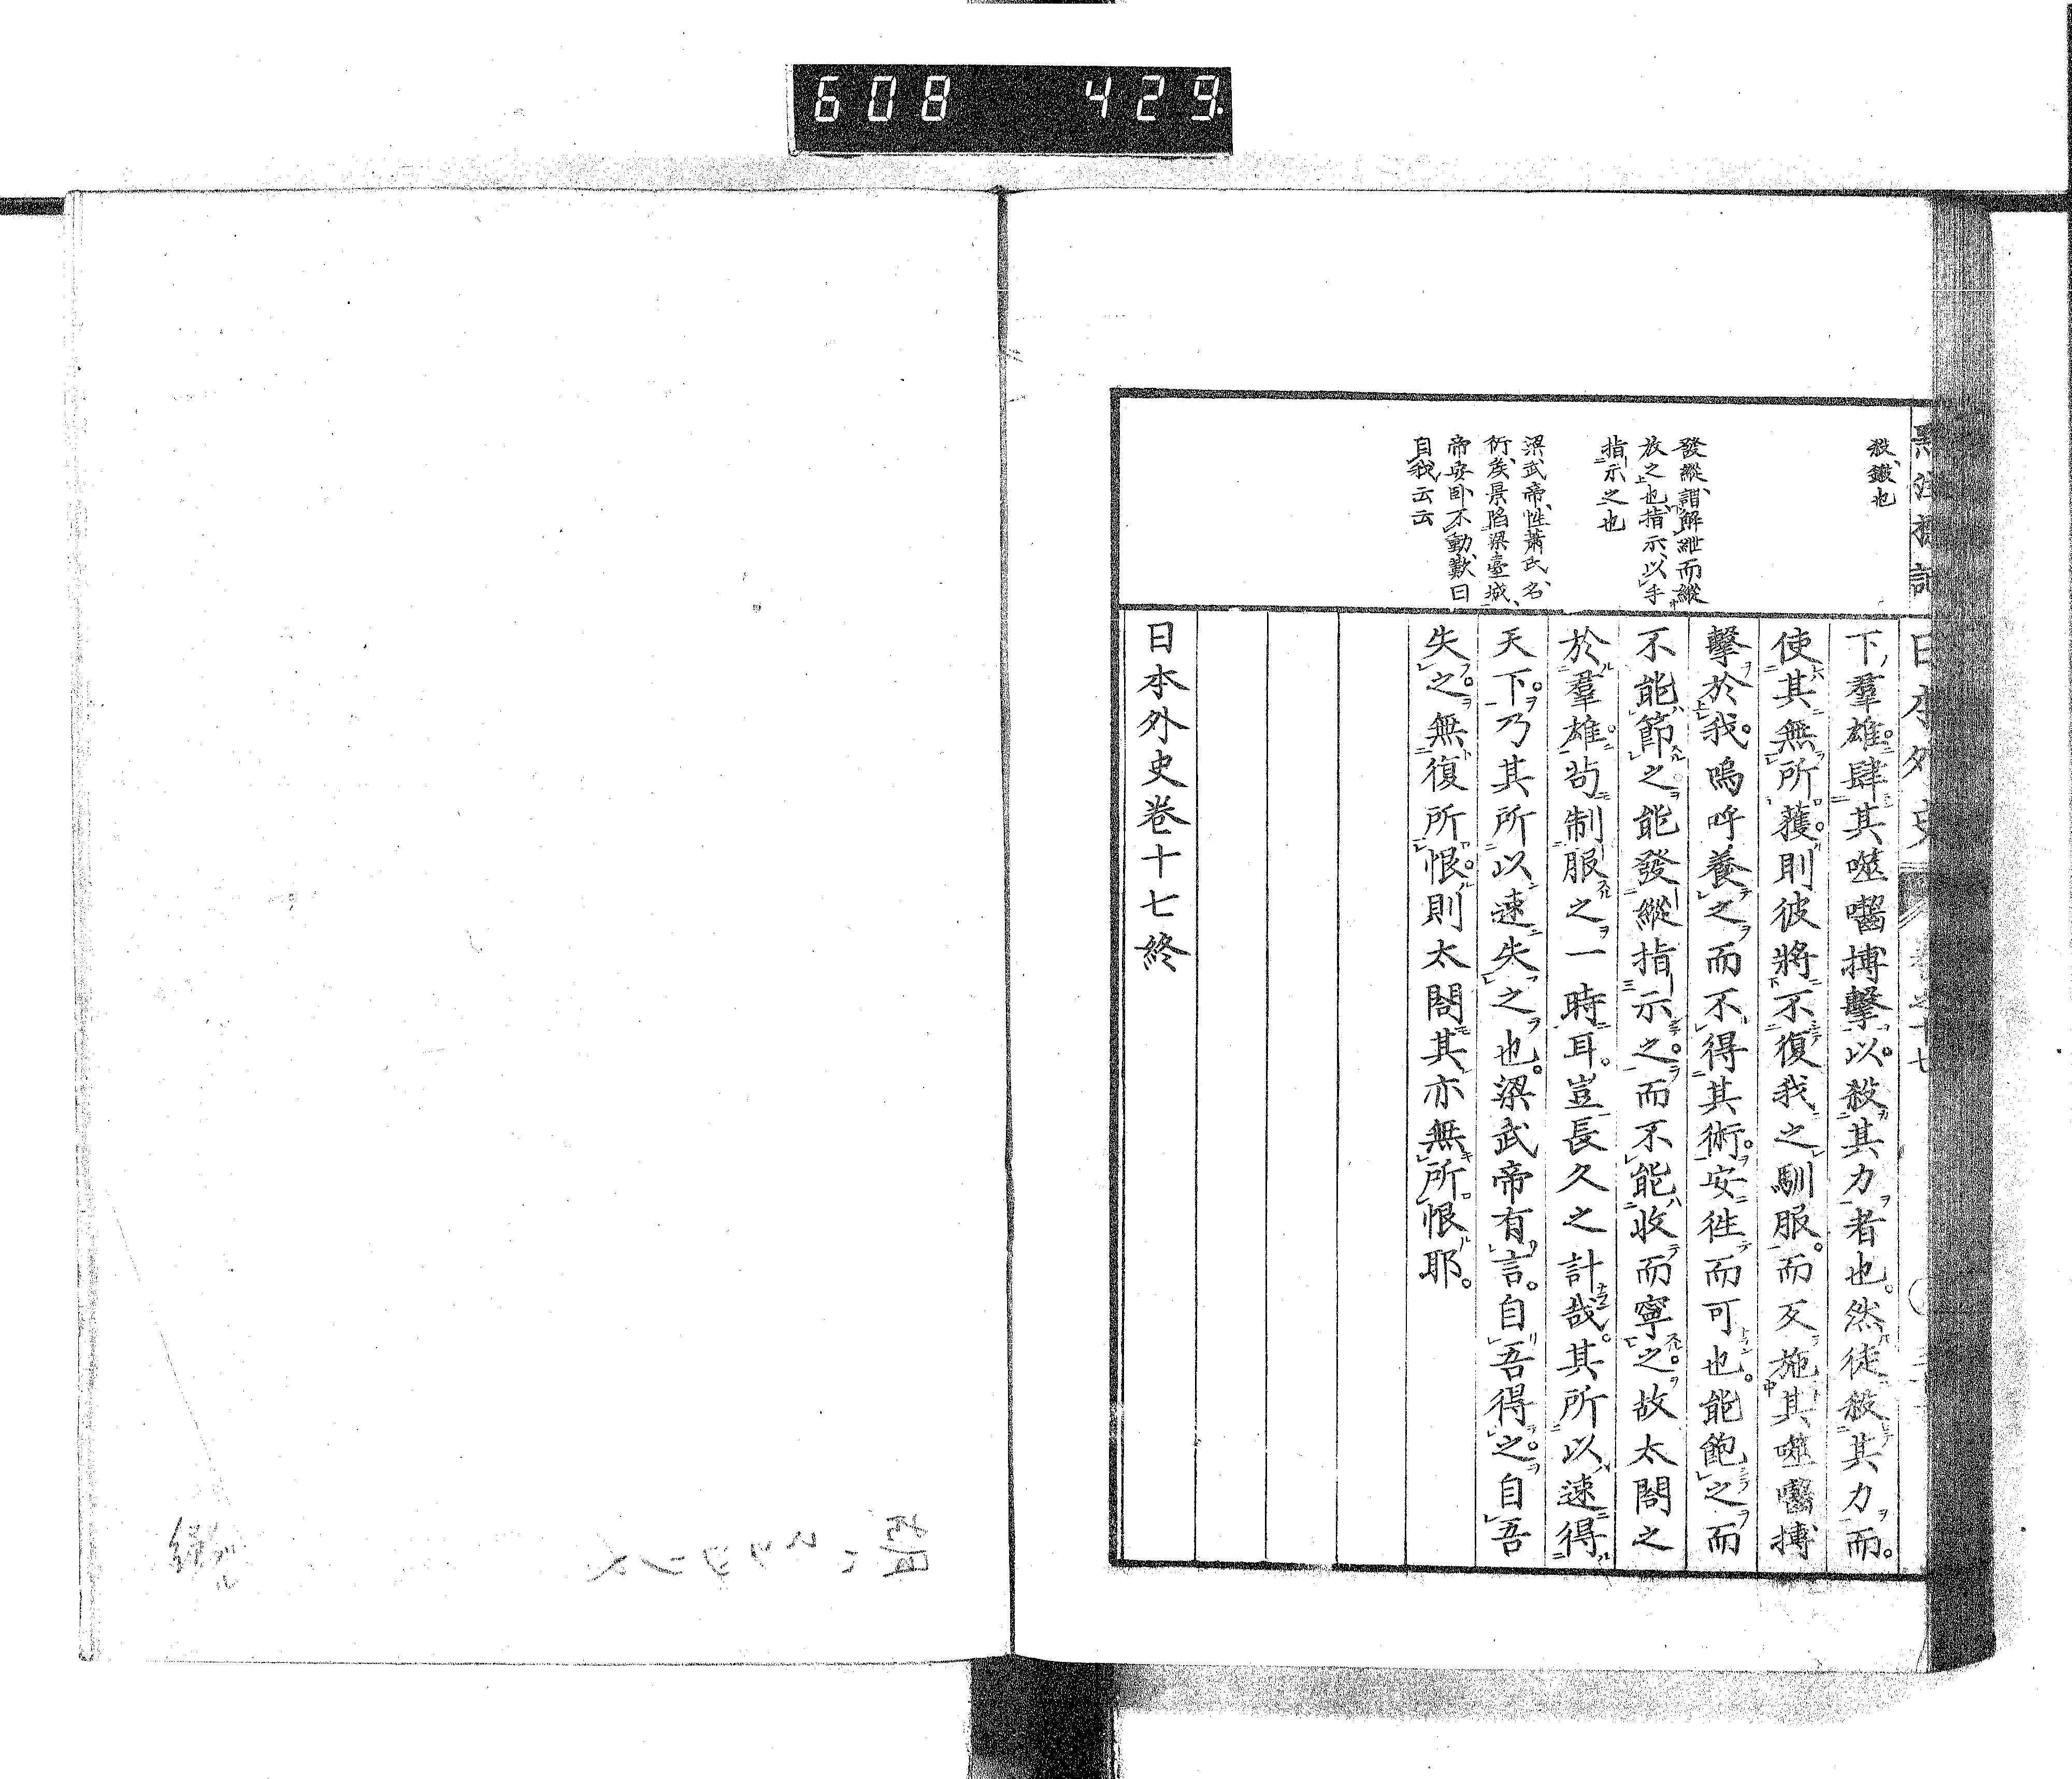 608 429
日本外史
下羣雄。肆其噬囓搏擊。以殺其力者也。然徒殺其力而。
使其無所獲。則彼將不復我之馴服。而反施其噬囓搏
擊於我。嗚呼養之而不得其術。安往而可也。能飽之而
不能節之能發縱指示之。而不能收而寧之。故太閤之
於羣雄。苟制服之一時耳。豈長久之計哉。其所以速得
天下。乃其所以速失之也。梁武帝有言。自吾得之。自吾
失之。無復所恨。則太閤其亦無所恨耶。
日本外史卷十七終
殺、鎩也
發縱、謂解紲而縱
放之也、指示、以手
指示之也
梁武帝、性蕭氏、名
衍、矦景陷梁臺城、
帝安卧不動、歎曰
自我云云